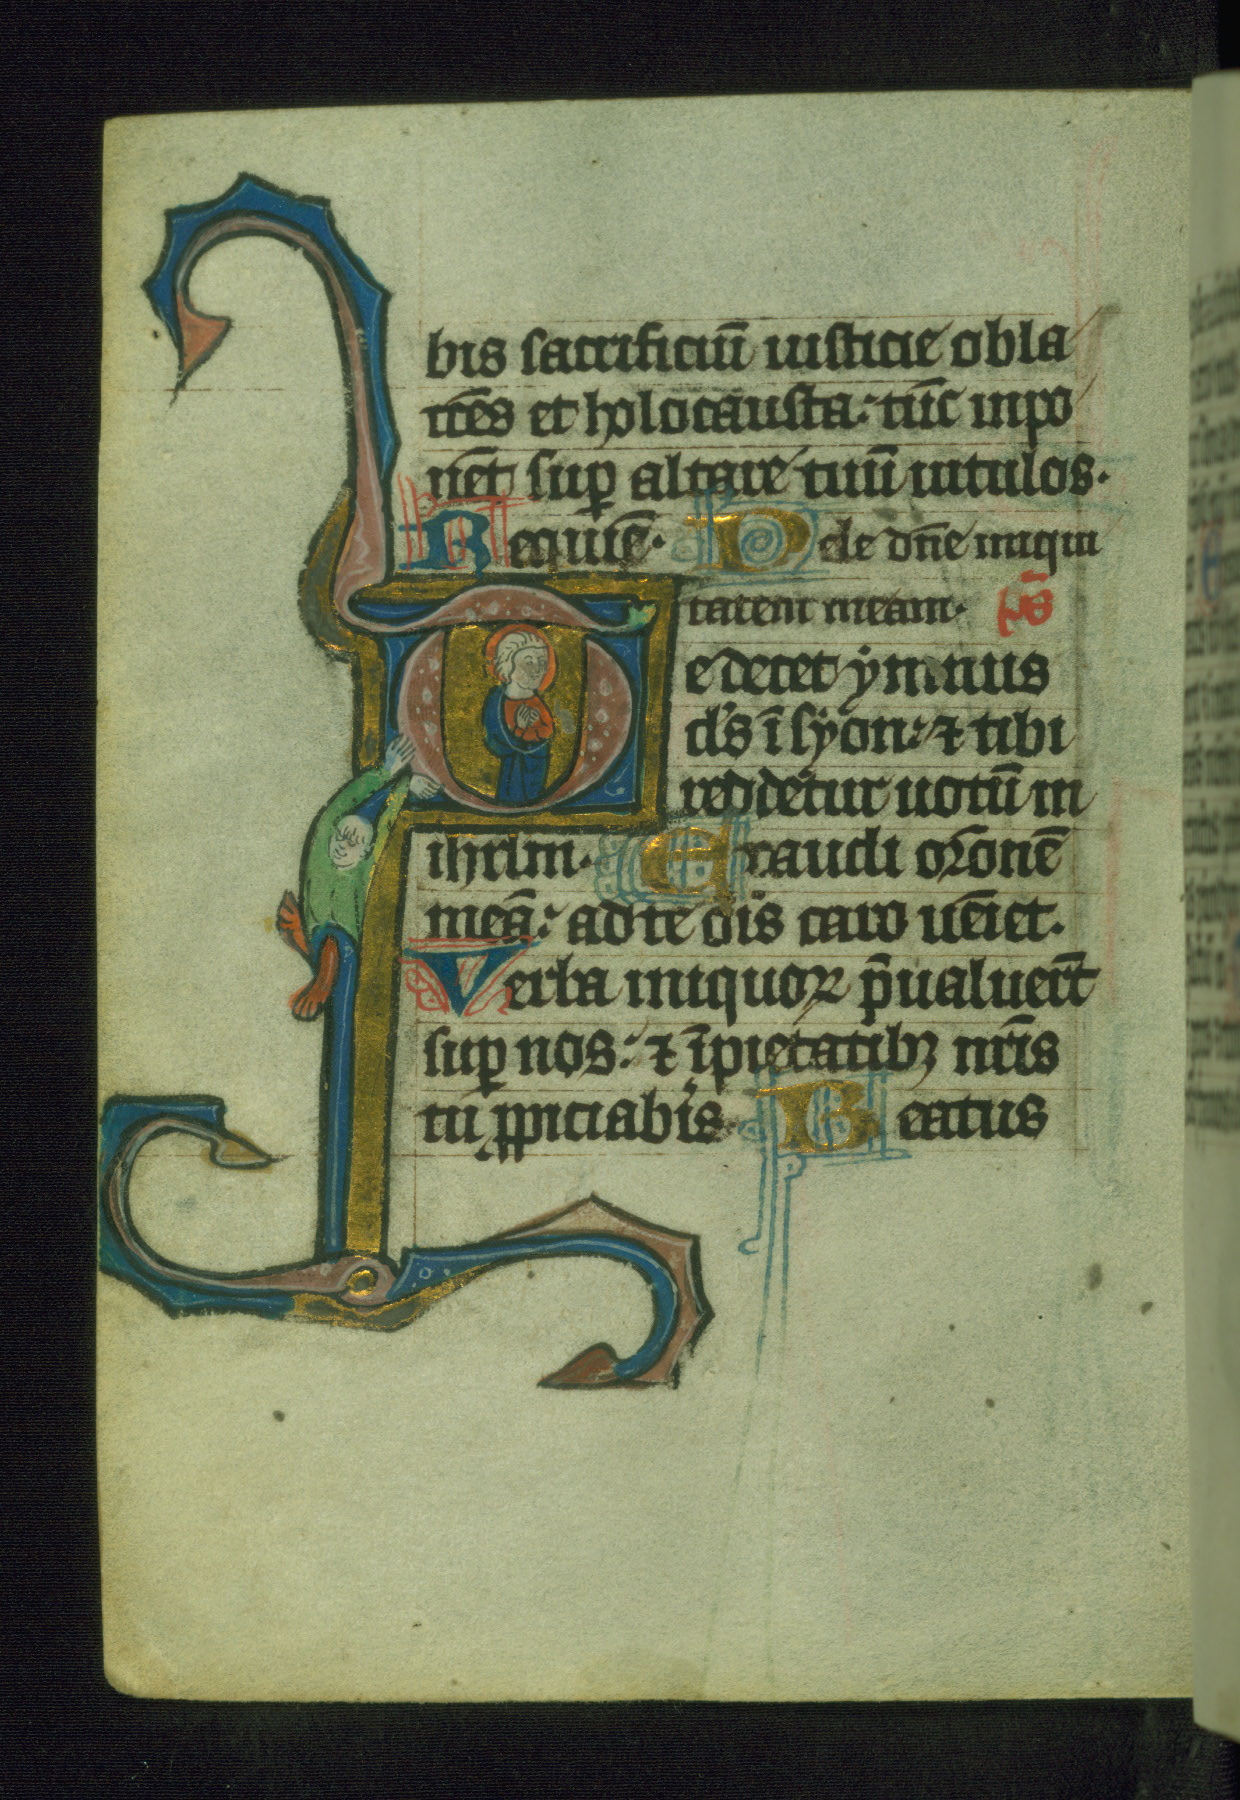 bis sacrificiū iusticie obla
tōēs et holocausta: tūc inpo
nēt sup altare tuū uitulos.
Requiē. Dele dn̄e iniqui
tatem meam. p̄s
Te decet ymnus
ds̄ ī syon: ⁊ tibi
reddetur uotū in
ihrlm. Exaudi orōnē
meā: ad te ōīs caro ueīet.
Verba iniquoꝝ p̄ualuer̄t
sup nos: ⁊ īpietatibꝫ nr̄is
tu ꝓpiciab̄is. Beatus